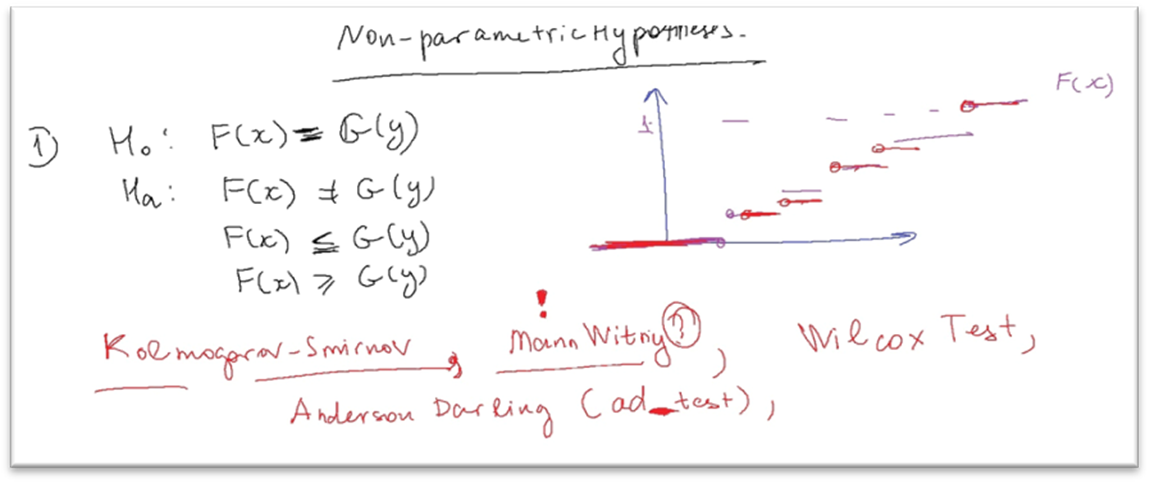 Non-parametric Hypotheses.
1) H₀: F(x) = G(y)
Hₐ: F(x) ≠ G(y)
F(x) ≤ G(y)
F(x) ≥ G(y)
1
F(x)
!
Kolmogorov-Smirnov, Mann Witniy(?), Wilcox Test,
Anderson Darling (ad_test),